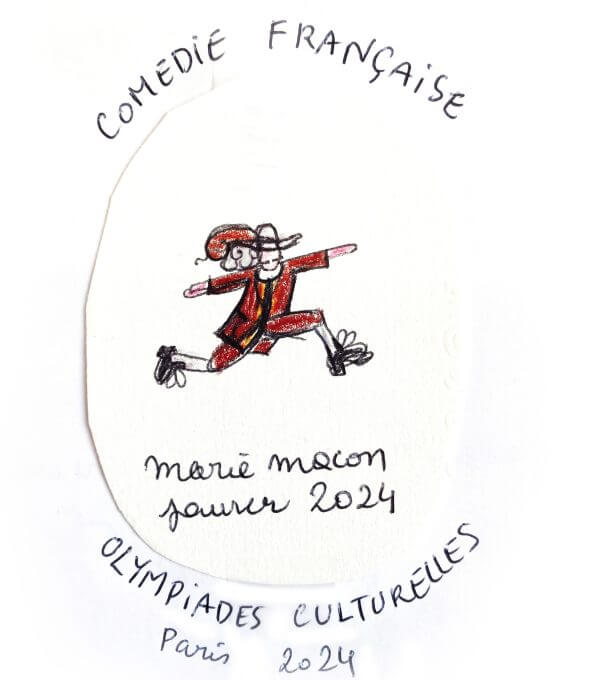 COMEDIE FRANÇAISE
marie macon
janvier 2024
OLYMPIADES CULTURELLES
Paris 2024